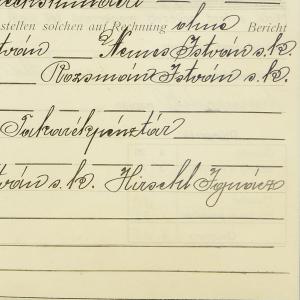 stellen solchen auf Rechnung ohne Bericht
tván Nemes István s.k.
Rozsmán István s.k.
Takarékpénztár
tván s.k. Hirschl Ignácz